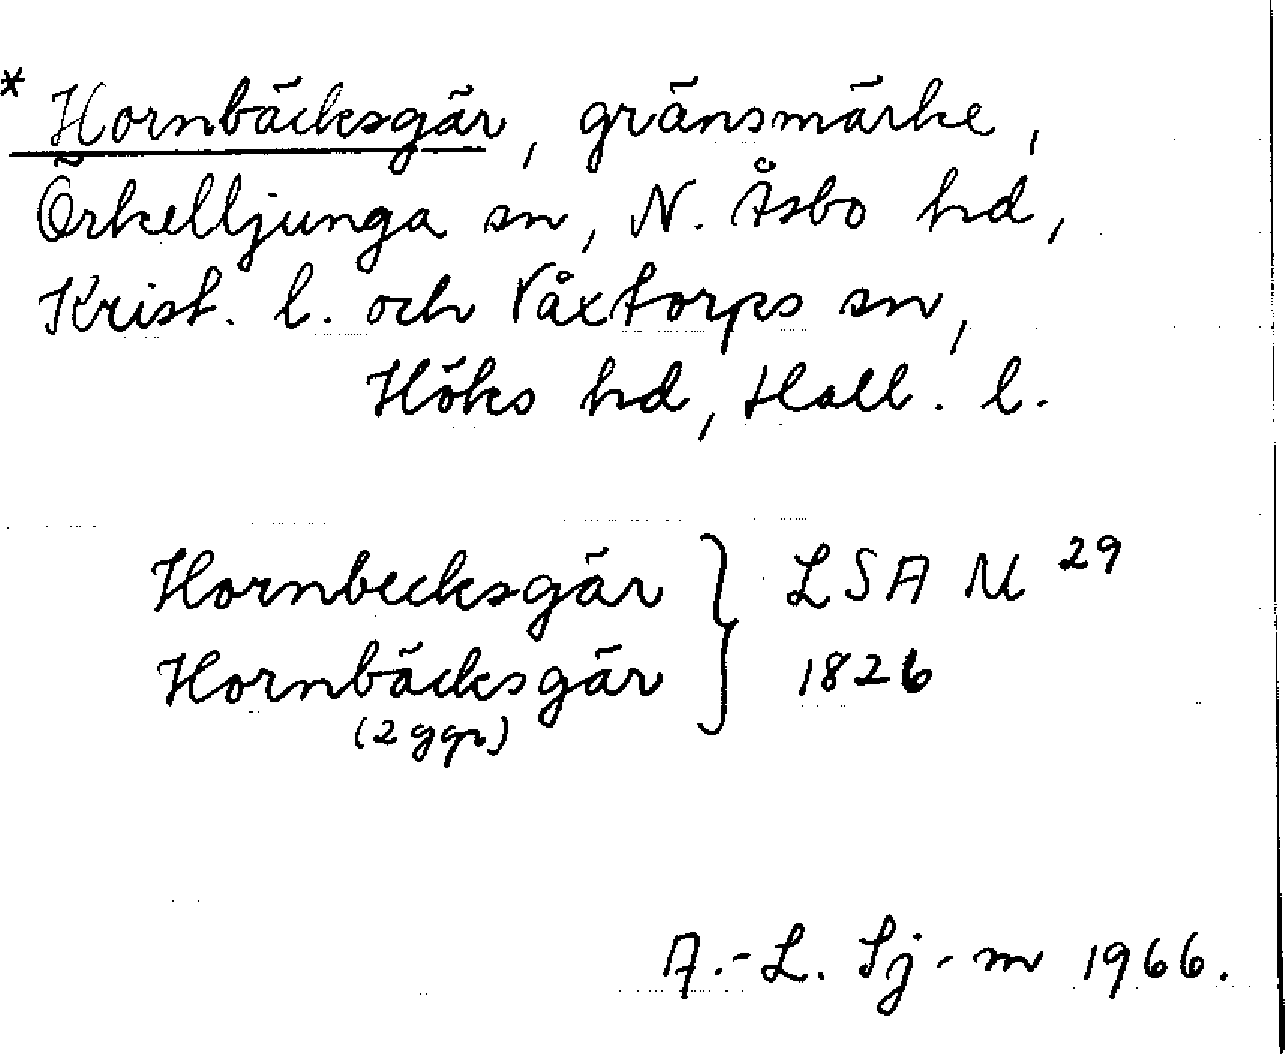 * Hornbäcksgär, gränsmärke,
Örkelljunga sn, N. Åsbo hd,
Krist. l. och Våxtorps sn,
Höks hd, Hall. l.
Hornbecksgär } LSA M 29
Hornbäcksgär 1826
(2 ggr)
A.-L. Sj-m 1966.